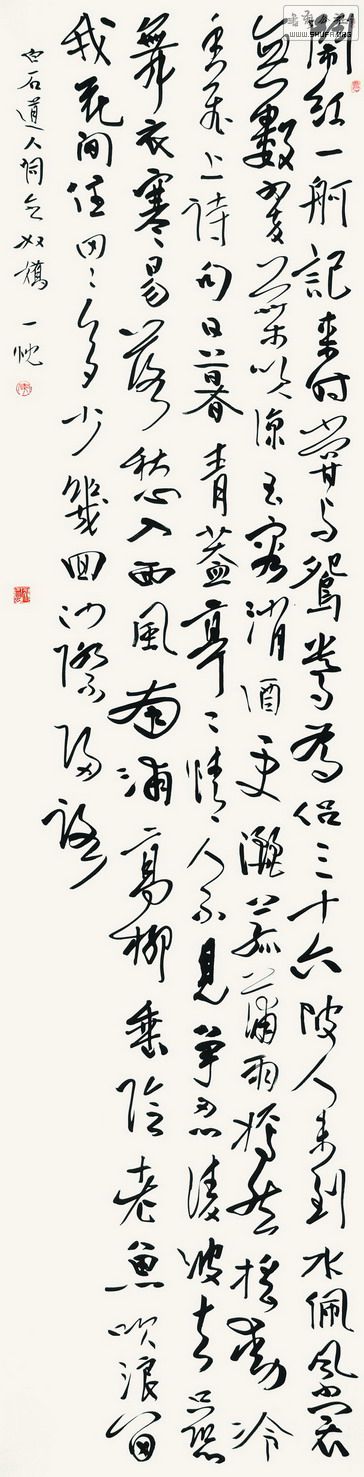 鬧紅一舸記來時嘗與鴛鴦為侶三十六陂人未到水佩風裳
無數翠葉吹涼玉容消酒更灑菰蒲雨嫣然搖動冷
香飛上詩句日暮青蓋亭〻情人不見爭忍淩波去只恐
舞衣寒易落愁入西風南浦高柳垂陰老魚吹浪留
我花間住田〻多少幾回沙際歸路
白石道人詞念奴嬌 一忱
WWW.SHUFA.ORG